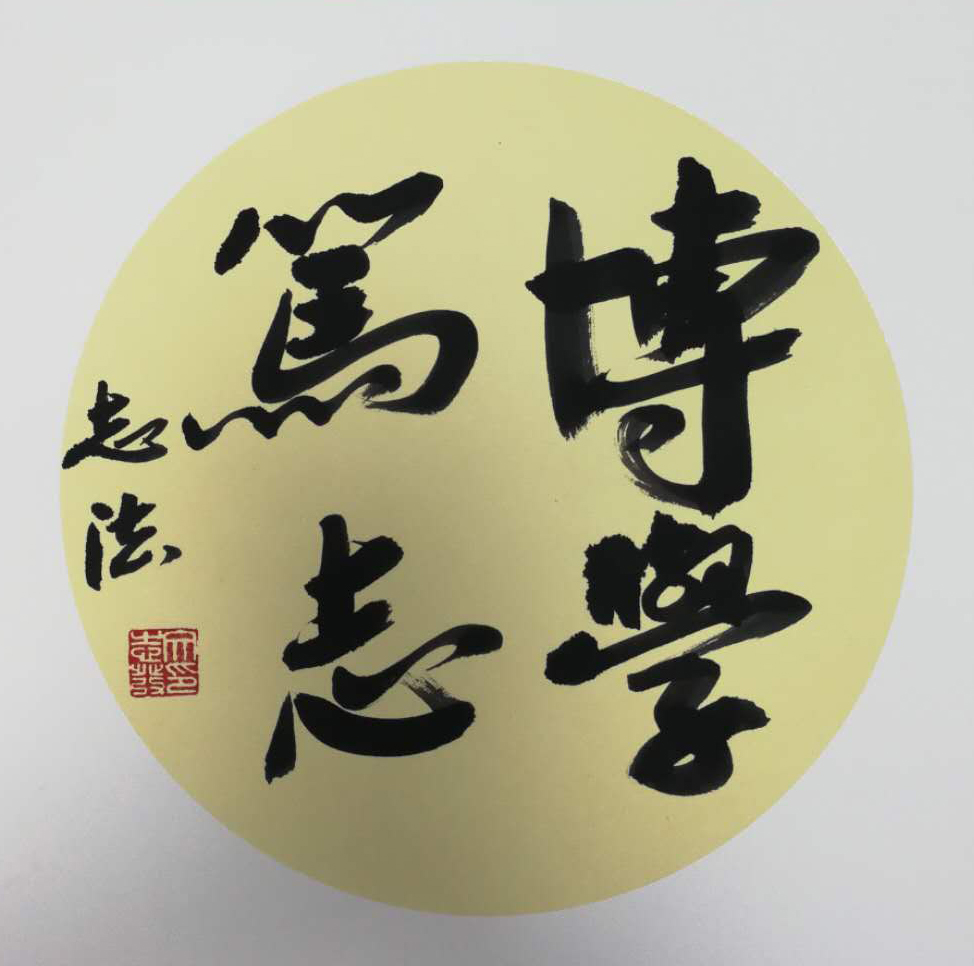 博學
篤志
志法